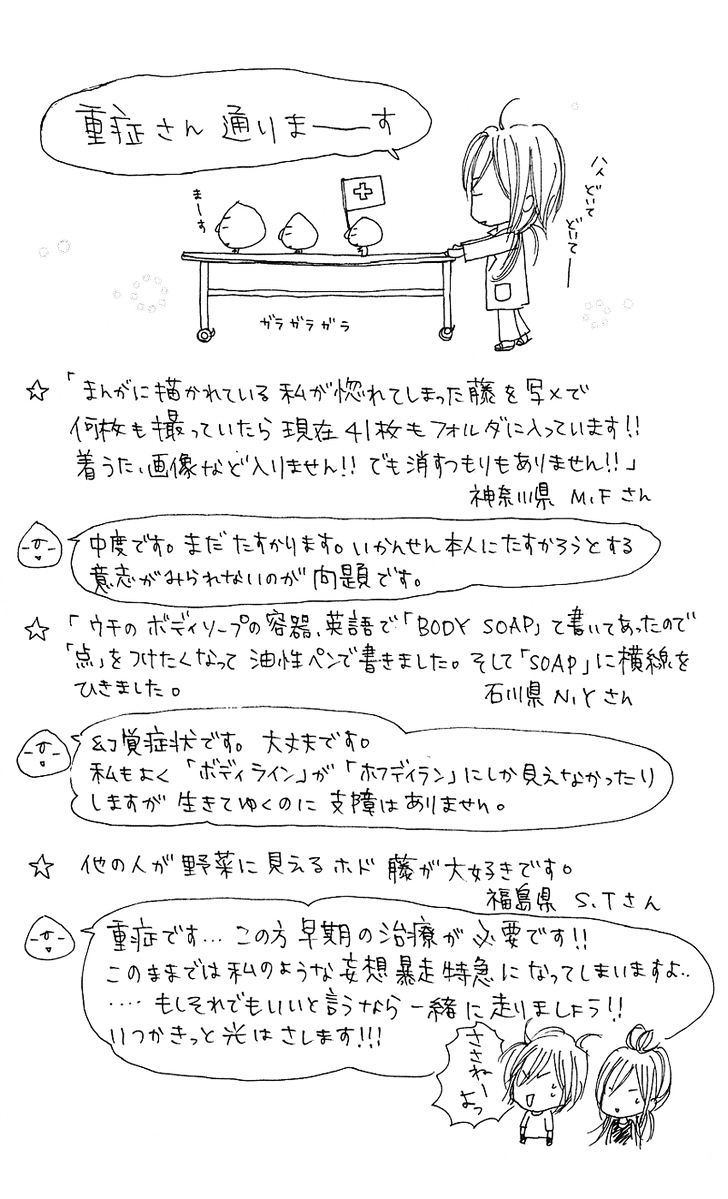 重症さん 通りまーーす
まーす
ハイ どいて
どいてー
ガラガラガラ
☆ 「まんがに描かれている私が惚れてしまった藤を写メで
何枚も撮っていたら現在41枚もフォルダに入っています!!
着うた、画像など入りません!! でも消すつもりもありません!!」
神奈川県 M.Fさん
中度です。まだたすかります。いかんせん本人にたすかろうとする
意志がみられないのが問題です。
☆ 「ウチのボディソープの容器、英語で「BODY SOAP」て書いてあったので
「点」をつけたくなって油性ペンで書きました。そして「SOAP」に横線を
ひきました。
石川県 N.Yさん
幻覚症状です。大丈夫です。
私もよく「ボディライン」が「ホフディラン」にしか見えなかったり
しますが生きてゆくのに支障はありません。
☆ 他の人が野菜に見えるホド藤が大好きです。
福島県 S.Tさん
重症です…この方早期の治療が必要です!!
このままでは私のような妄想暴走特急になってしまいますよ..
‥‥もしそれでもいいと言うなら一緒に走りましょう!!
いつかきっと光はさします!!!
ささねー
よっ